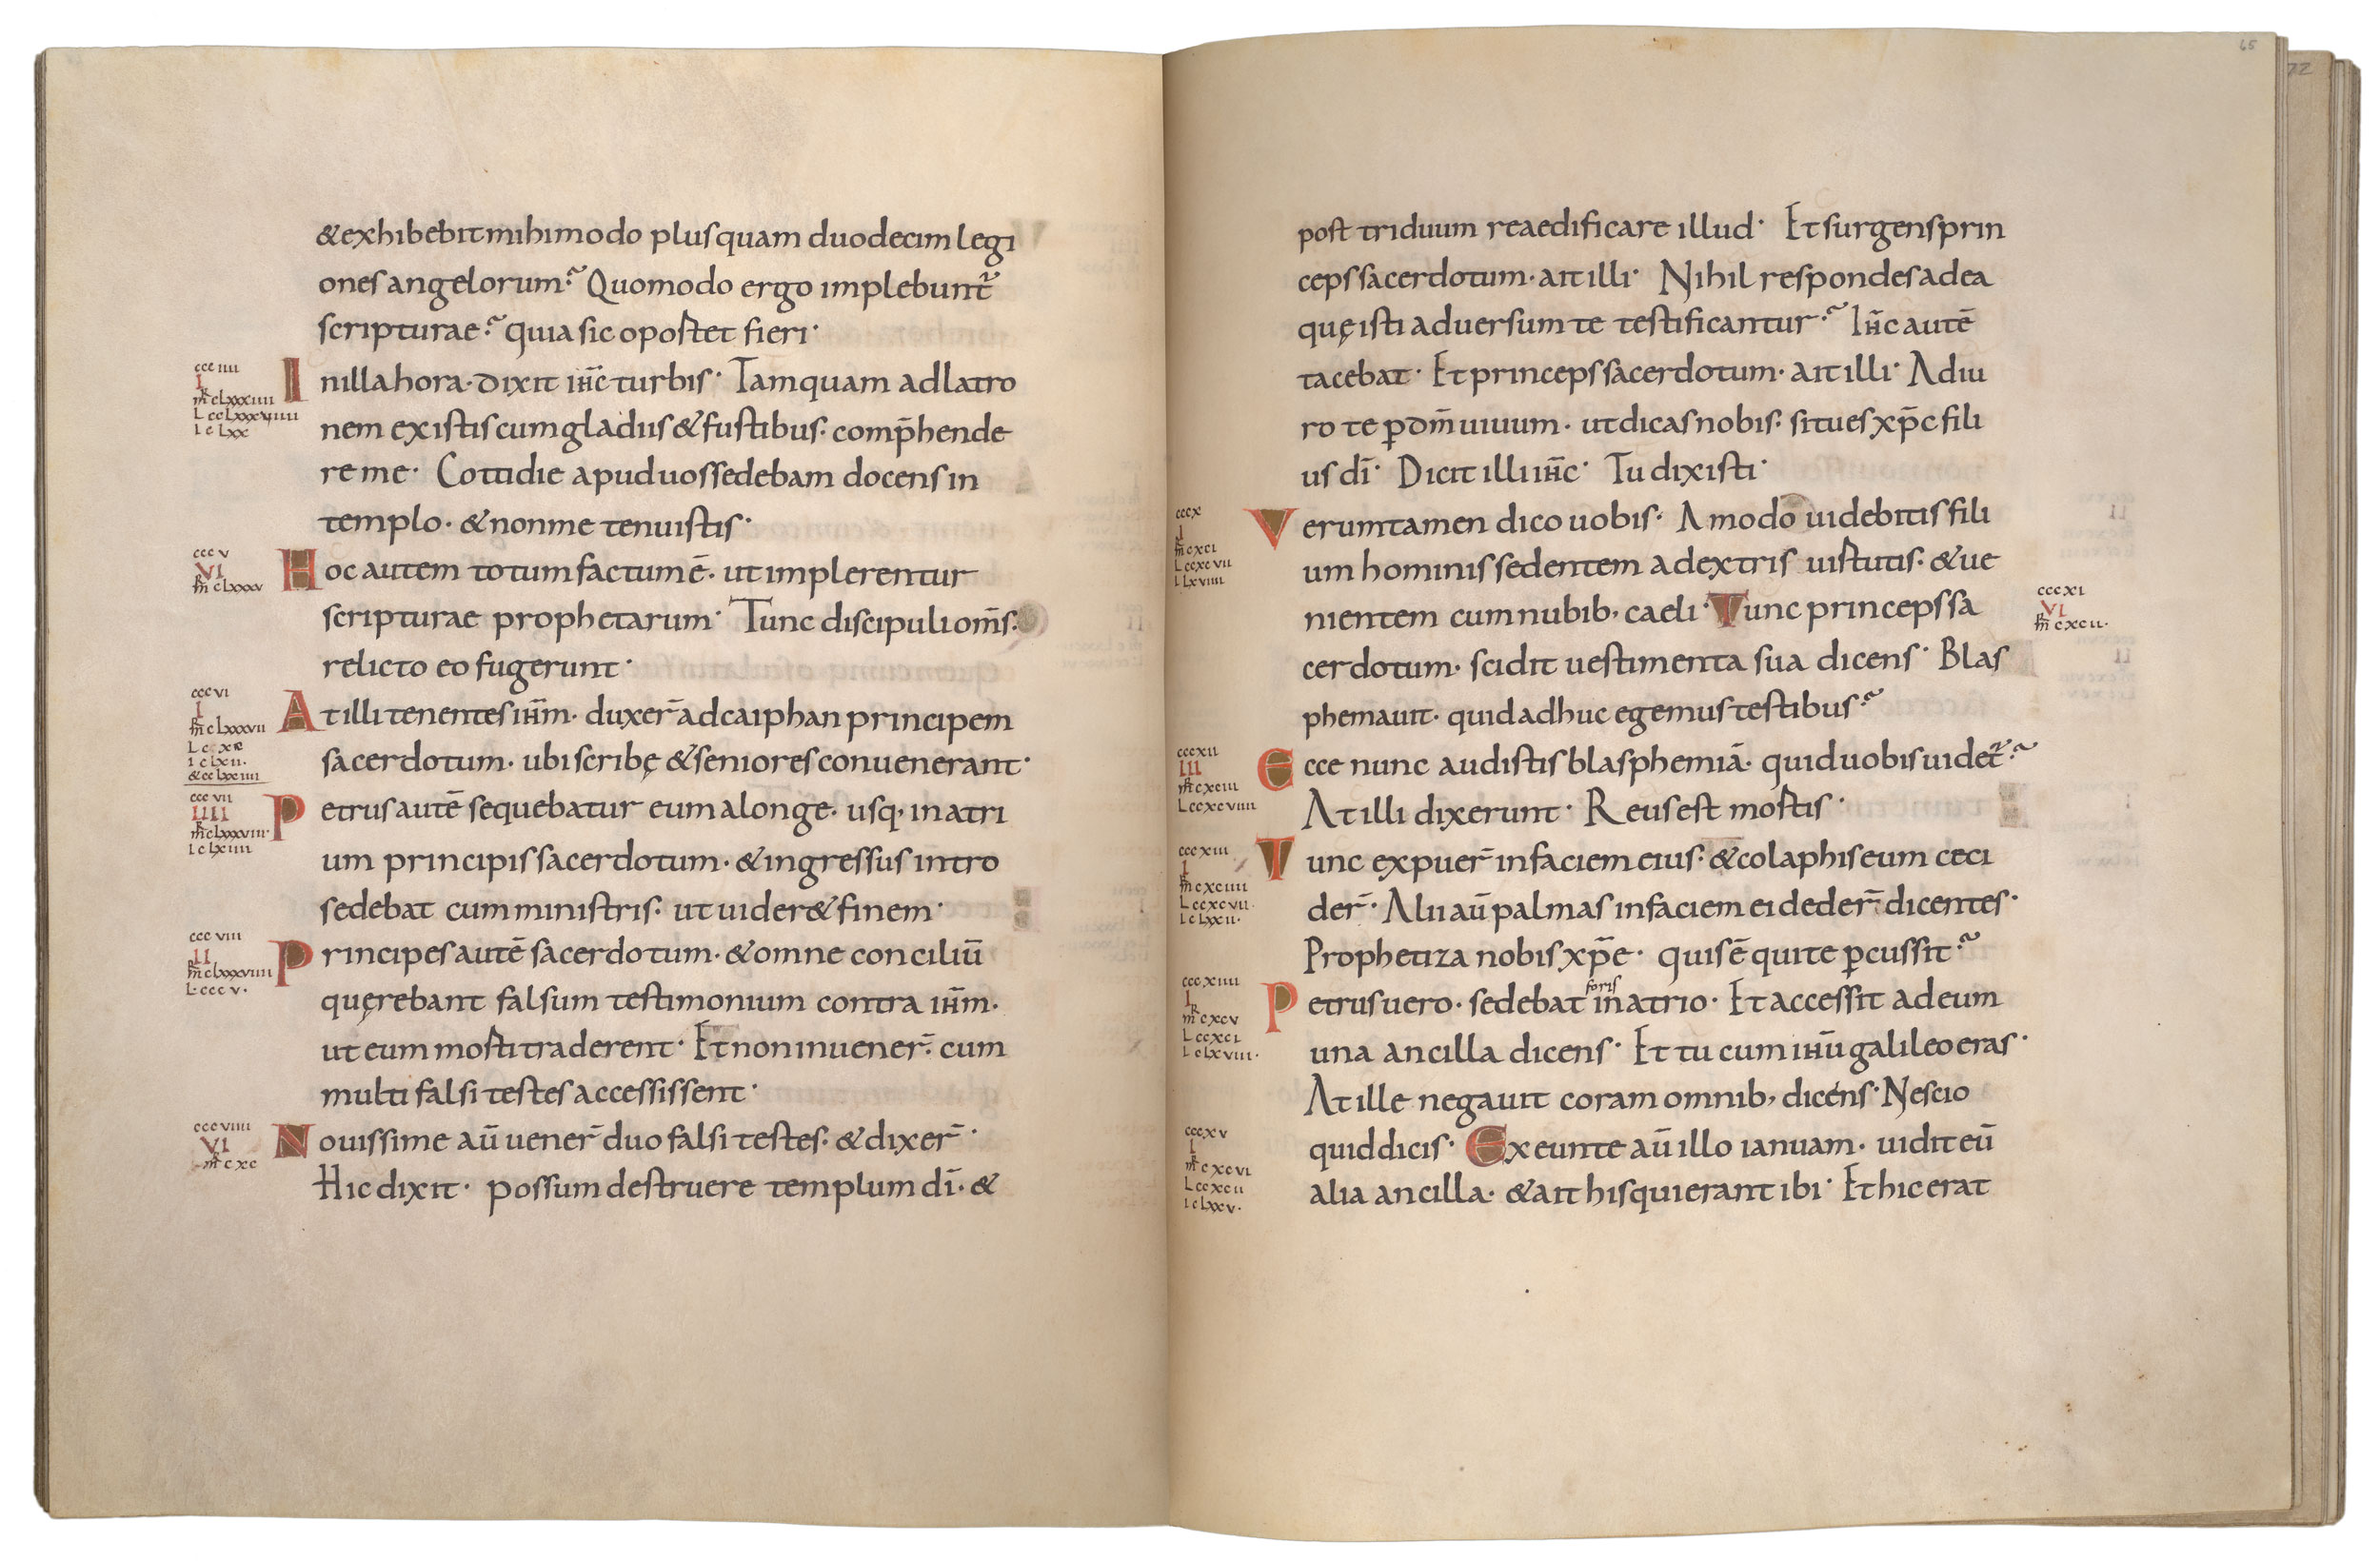 &exhibebit mihi modo plusquam duodecim legi
ones angelorum? Quomodo ergo implebunt̃
scripturae? quia sic oportet fieri·
ccc iiii
I
m̃ clxxxiiii
L cclxxxviiii
I clxx
In illa hora· dixit ihc̄ turbis· Tamquam ad latro
nem existis cum gladiis & fustibus· comp̄hende
re me· Cottidie apud uos sedebam docens in
templo· & non me tenuistis·
ccc v
VI
m̃ clxxxv
Hoc autem totum factum ē· ut implerentur
scripturae prophetarum· Tunc discipuli om̄s·
relicto eo fugerunt·
ccc vi
I
m̃ clxxxvii
I clxii·
& cclxxiiii
At illi tenentes ihm̄· duxer̄ ad caiphan principem
sacerdotum· ubi scribę & seniores conuenerant·
ccc vii
IIII
m̃ clxxxviii·
I clxiiii
Petrus autē sequebatur eum a longe· usq, in atri
um principis sacerdotum· & ingressus intro
sedebat cum ministris· ut uider& finem·
ccc viii
II
m̃ clxxxviiii
L ccc v·
Principes autē sacerdotum· & omne conciliū
quęrebant falsum testimonium contra ihm̄·
ut eum morti traderent· Et non inuener̄· cum
multi falsi testes accessissent·
ccc viiii
VI
m̃ cxc
Nouissime aū uener̄ duo falsi testes· & dixer̄·
Hic dixit· possum destruere templum dī· &
65
72
post triduum reaedificare illud· Et surgens prin
ceps sacerdotum· ait illi· Nihil respondes ad ea
quę isti aduersum te testificantur? Ihc̄ autē
tacebat· Et princeps sacerdotum· ait illi· Adiu
ro te ꝑ dm̄ uiuum· ut dicas nobis· si tu es xp̄c fili
us dī· Dicit illi ihc̄· Tu dixisti·
ccc x
I
m̃ cxci
L ccxcvii
I lxviiii
Verumtamen dico uobis· Amodo uidebitis fili
um hominis sedentem a dextris uirtutis· & ue
nientem cum nubib, caeli· Tunc princeps sa
ccc xi
VI
m̃ cxcii·
cerdotum· scidit uestimenta sua dicens· Blas
phemauit· quid adhuc egemus testibus?
ccc xii
III
m̃ cxciii
L ccxcviiii
Ecce nunc audistis blasphemiā· quid uobis uidet̃?
At illi dixerunt· Reus est mortis·
ccc xiii
I
m̃ cxciiii
L ccxcvii·
I clxxii·
Tunc expuer̄ in faciem eius· & colaphis eum ceci
der̄· Alii aū palmas in faciem ei deder̄ dicentes·
Prophetiza nobis xp̄e· quis ē qui te ꝑcussit?
ccc xiiii
I
m̃ cxcv
L ccxci
I clxviii·
foris
Petrus uero· sedebat in atrio· Et accessit ad eum
una ancilla dicens· Et tu cum ihū galileo eras·
At ille negauit coram omnib, dicens· Nescio
ccc xv
I
m̃ cxcvi
L ccxcii
I clxxv·
quid dicis· Exeunte aū illo ianuam· uidit eū
alia ancilla· & ait his qui erant ibi· Et hic erat